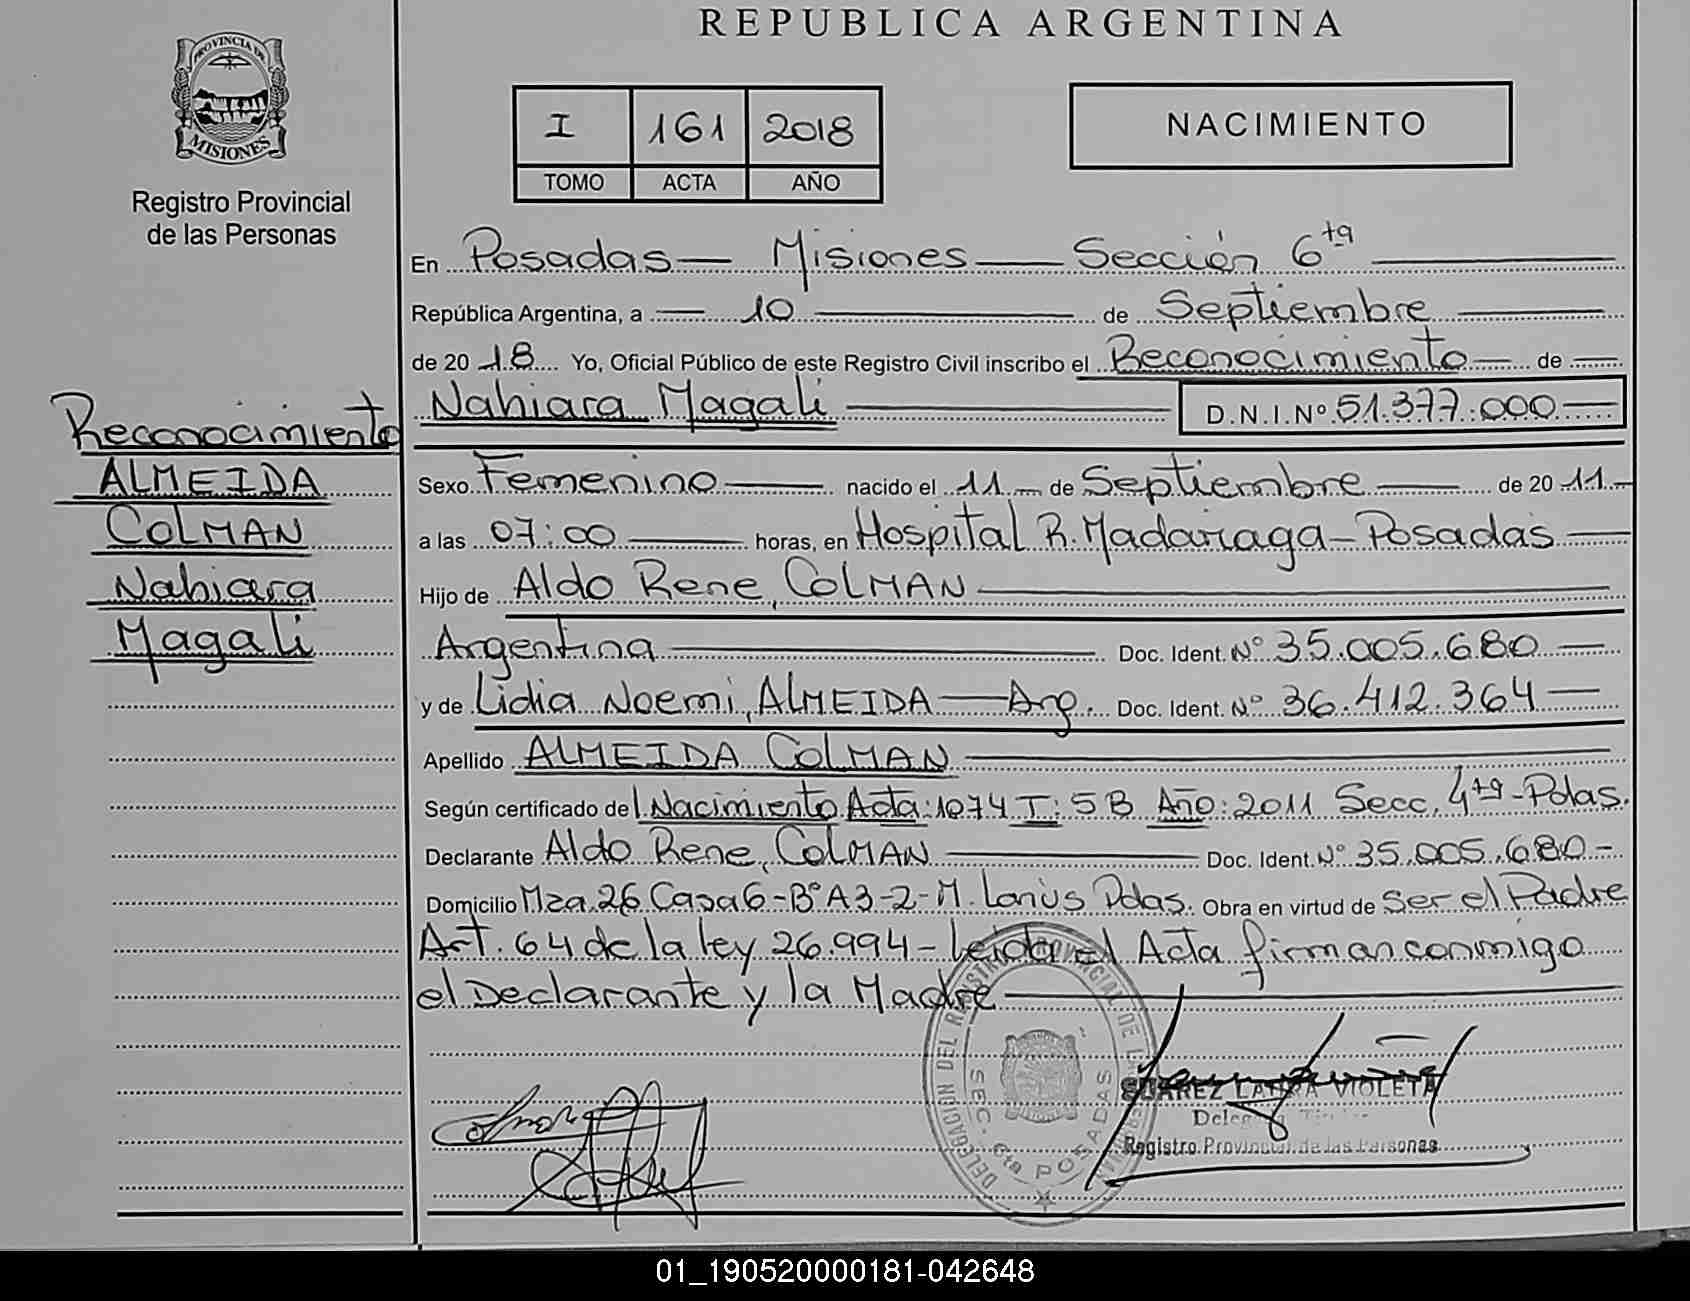 REPUBLICA ARGENTINA
PROVINCIA DE
MISIONES
Registro Provincial
de las Personas
I 161 2018
TOMO ACTA AÑO
NACIMIENTO
En Posadas — Misiones — Sección 6ta
República Argentina, a — 10 — de Septiembre —
de 20 18 Yo, Oficial Público de este Registro Civil inscribo el Reconocimiento — de —
Nahiara Magali — D.N.I.Nº 51.377.000 —
Sexo Femenino — nacido el 11 — de Septiembre — de 20 11 —
a las 07:00 — horas, en Hospital R. Madariaga - Posadas —
Hijo de Aldo Rene, COLMAN —
Argentina — Doc. Ident. Nº 35.005.680 —
y de Lidia Noemi, ALMEIDA — Arg. Doc. Ident. Nº 36.412.364 —
Apellido ALMEIDA COLMAN —
Según certificado de l Nacimiento Acta: 1074 T: 5B Año: 2011 Secc. 4ta - Pdas.
Declarante Aldo Rene, COLMAN — Doc. Ident. Nº 35.005.680 -
Domicilio Mza. 26 Casa 6 - Bº A3-2 - M. Lanús Pdas. Obra en virtud de Ser el Padre
Art. 64 de la ley 26.994 - Leida el Acta firman conmigo
el Declarante y la Madre —
Reconocimiento
ALMEIDA
COLMAN
Nahiara
Magali
DELEGACION DEL REGISTRO PROVINCIAL DE LAS
SEC. 6ta POSADAS
SUAREZ LAURA VIOLETA
Registro Provincial de las Personas
01_190520000181-042648